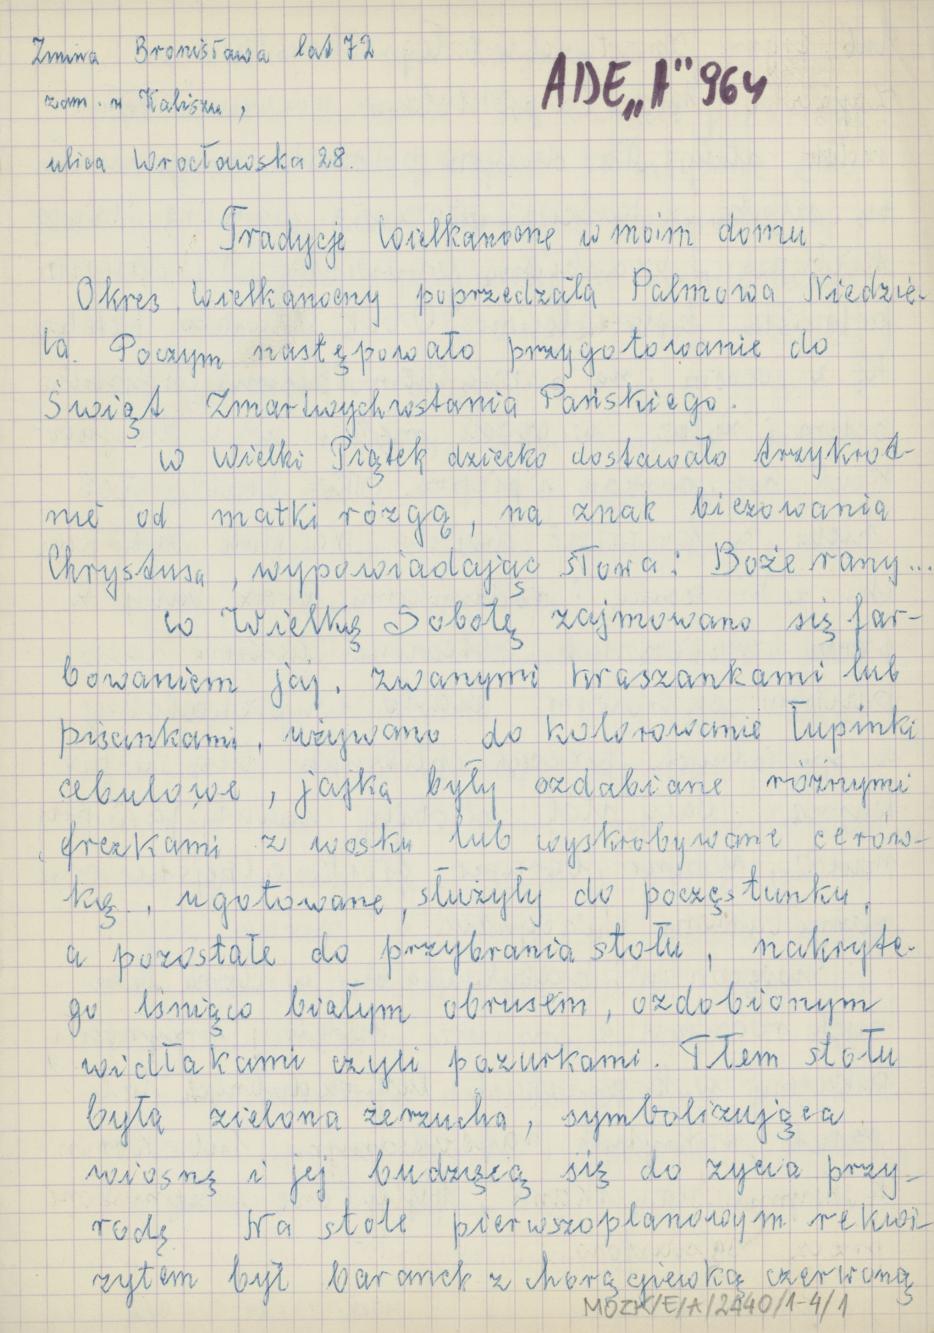 Zmina Bronisława lat 72
ADE „A" 964
zam. w Kaliszu,
ulica Wrocławska 28.
Tradycje Wielkanocne w moim domu
Okres Wielkanocny poprzedzała Palmowa Niedzie-
la. Poczym następowało przygotowanie do
Świąt Zmartwychwstania Pańskiego.
W Wielki Piątek dziecko dostawało trzykrot-
nie od matki rózgą, na znak biczowania
Chrystusa, wypowiadając słowa: Boże rany...
W Wielką Sobotę zajmowano się far-
bowaniem jaj. zwanymi kraszankami lub
pisankami. używano do kolorowanie łupinki
cebulowe, jajka były ozdabiane różnymi
frezkami z wosku lub wyskrobywane cerów-
ką. ugotowane, służyły do poczęstunku,
a pozostałe do przybrania stołu, nakryte-
go lśniąco białym obrusem, ozdobionym
widłakami czyli pazurkami. Tłem stołu
była zielona żerzucha, symbolizująca
wiosnę i jej budzącą się do zycia przy-
rodę Na stole pierwszoplanowym rekwi-
zytem był baranek z chorągiewką czerwoną
MOZK/E/A/2440/1-4/1